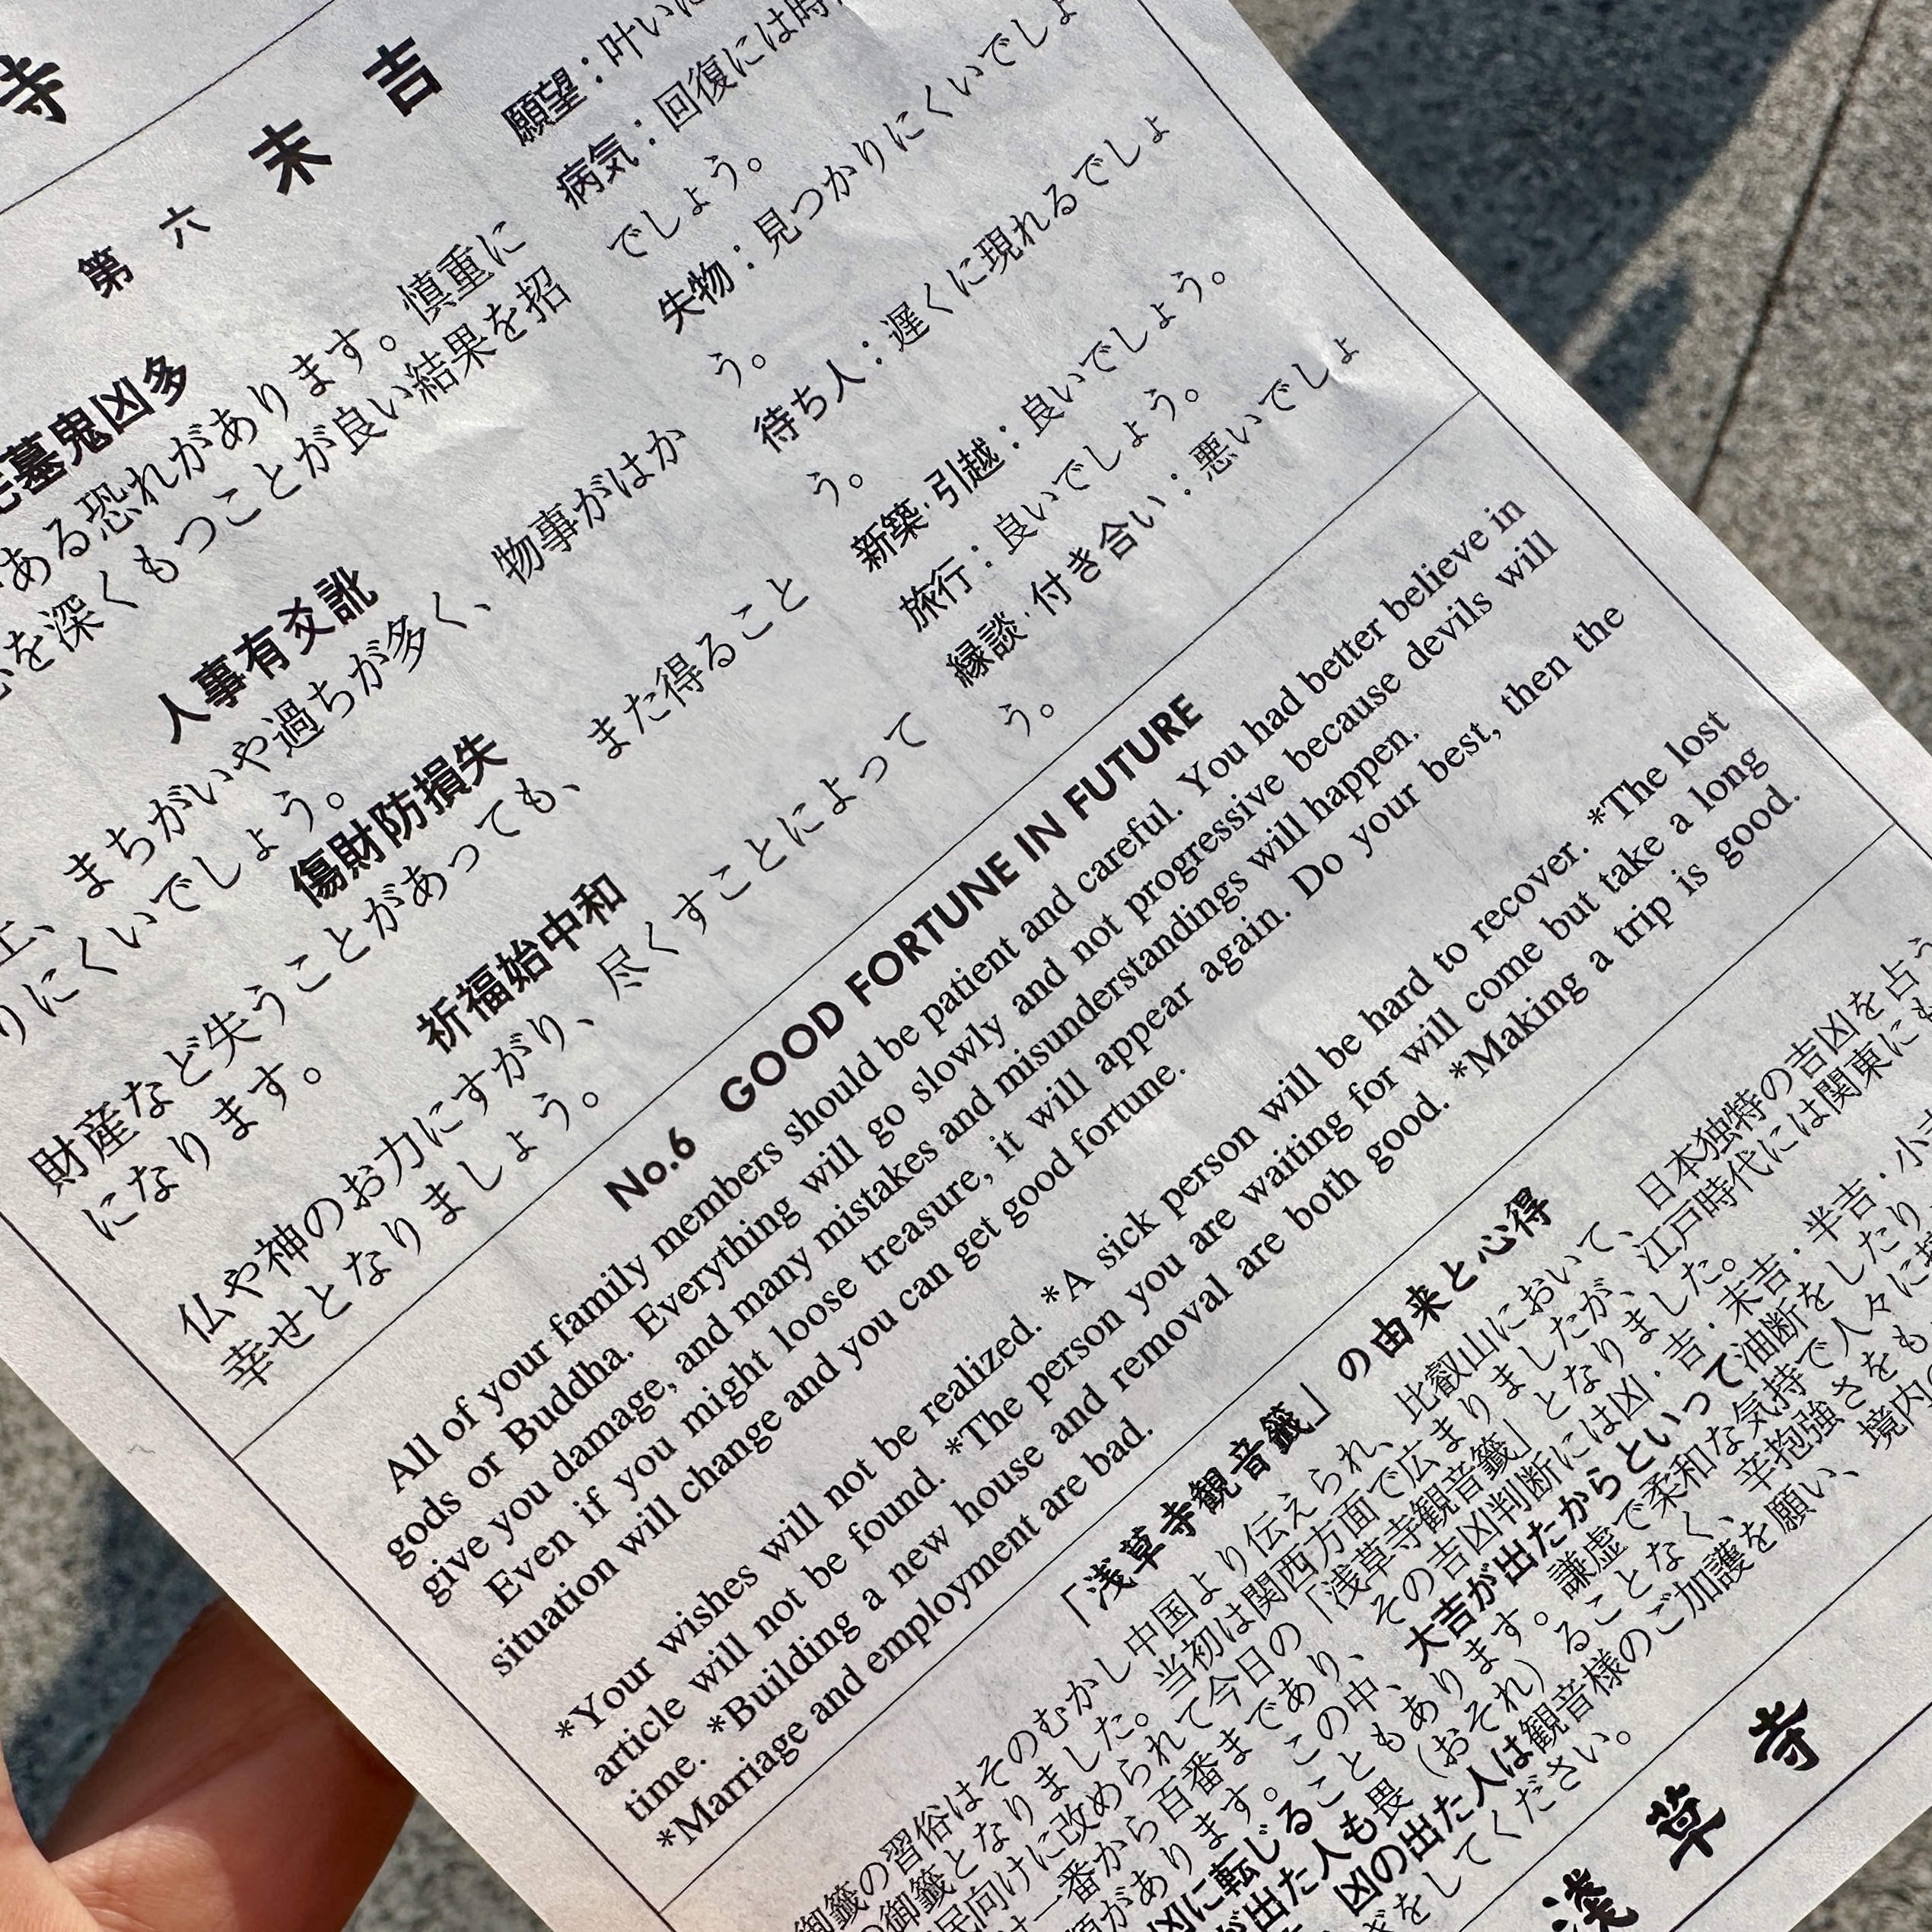 寺
第六 末吉
宅墓鬼凶多
ある恐れがあります。慎重に
を深くもつことが良い結果を招
人事有爻訛
、まちがいや過ちが多く、物事がはか
りにくいでしょう。
傷財防損失
財産など失うことがあっても、また得ること
になります。
祈福始中和
仏や神のお力にすがり、尽くすことによって
幸せとなりましょう。
願望：叶いに
病気：回復には時
でしょう。
失物：見つかりにくいでしょ
う。
待ち人：遅くに現れるでしょ
う。
新築・引越：良いでしょう。
旅行：良いでしょう。
縁談・付き合い：悪いでしょ
う。
No.6 GOOD FORTUNE IN FUTURE
All of your family members should be patient and careful. You had better believe in
gods or Buddha. Everything will go slowly and not progressive because devils will
give you damage, and many mistakes and misunderstandings will happen.
Even if you might loose treasure, it will appear again. Do your best, then the
situation will change and you can get good fortune.
*Your wishes will not be realized. *A sick person will be hard to recover. *The lost
article will not be found. *The person you are waiting for will come but take a long
time. *Building a new house and removal are both good. *Making a trip is good.
*Marriage and employment are bad.
「浅草寺観音籤」の由来と心得
御籤の習俗はそのむかし中国より伝えられ、比叡山において、日本独特の吉凶を占う
の御籤となりました。当初は関西方面で広まりましたが、江戸時代には関東にも
民向けに改められて今日の「浅草寺観音籤」となりました。
一番から百番まであり、その吉凶判断には凶・吉・末吉・半吉・小吉
類があります。この中、大吉が出たからといって油断をしたり
凶に転じることもあります。謙虚で柔和な気持で人々に接
が出た人も畏（おそれ）ることなく、辛抱強さをも
凶の出た人は観音様のご加護を願い、境内の
をしてください。
浅草寺